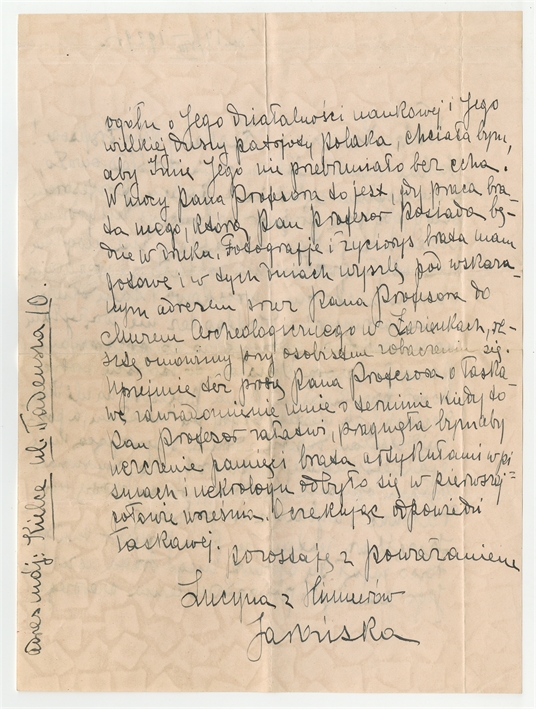 ogółu o Jego działalności naukowej i Jego
wielkiej duszy patrjoty polaka, chciałabym,
aby Imię Jego nie przebrzmiało bez echa.
W mocy Pana Profesora to jest, gdy praca bra-
ta mego, którą Pan Profesor posiada bę-
dzie w druku. Fotografje i życiorys brata mam
gotowe i w tych dniach wyszlę pod wskaza-
nym adresem przez Pana Profesora do
Muzeum Archeologicznego w Łazienkach, re-
sztę omówimy przy osobistem zobaczeniu się.
Uprzejmie też proszę Pana Profesora o łaska-
we zawiadomienie mnie o terminie kiedy to
Pan Profesor załatwi, pragnęłabym aby
uczczenie pamięci brata artykułami w pi-
smach i nekrologu odbyło się w pierwszej
połowie września. Oczekując odpowiedzi
łaskawej.
pozostaję z poważaniem
Lucyna z
Jasińska
adres mój: Kielce ul. Tadeusza 10.